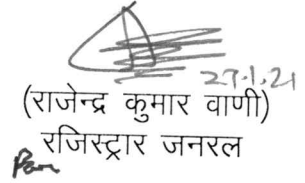 27.1.21
(राजेन्द्र कुमार वाणी)
रजिस्ट्रार जनरल